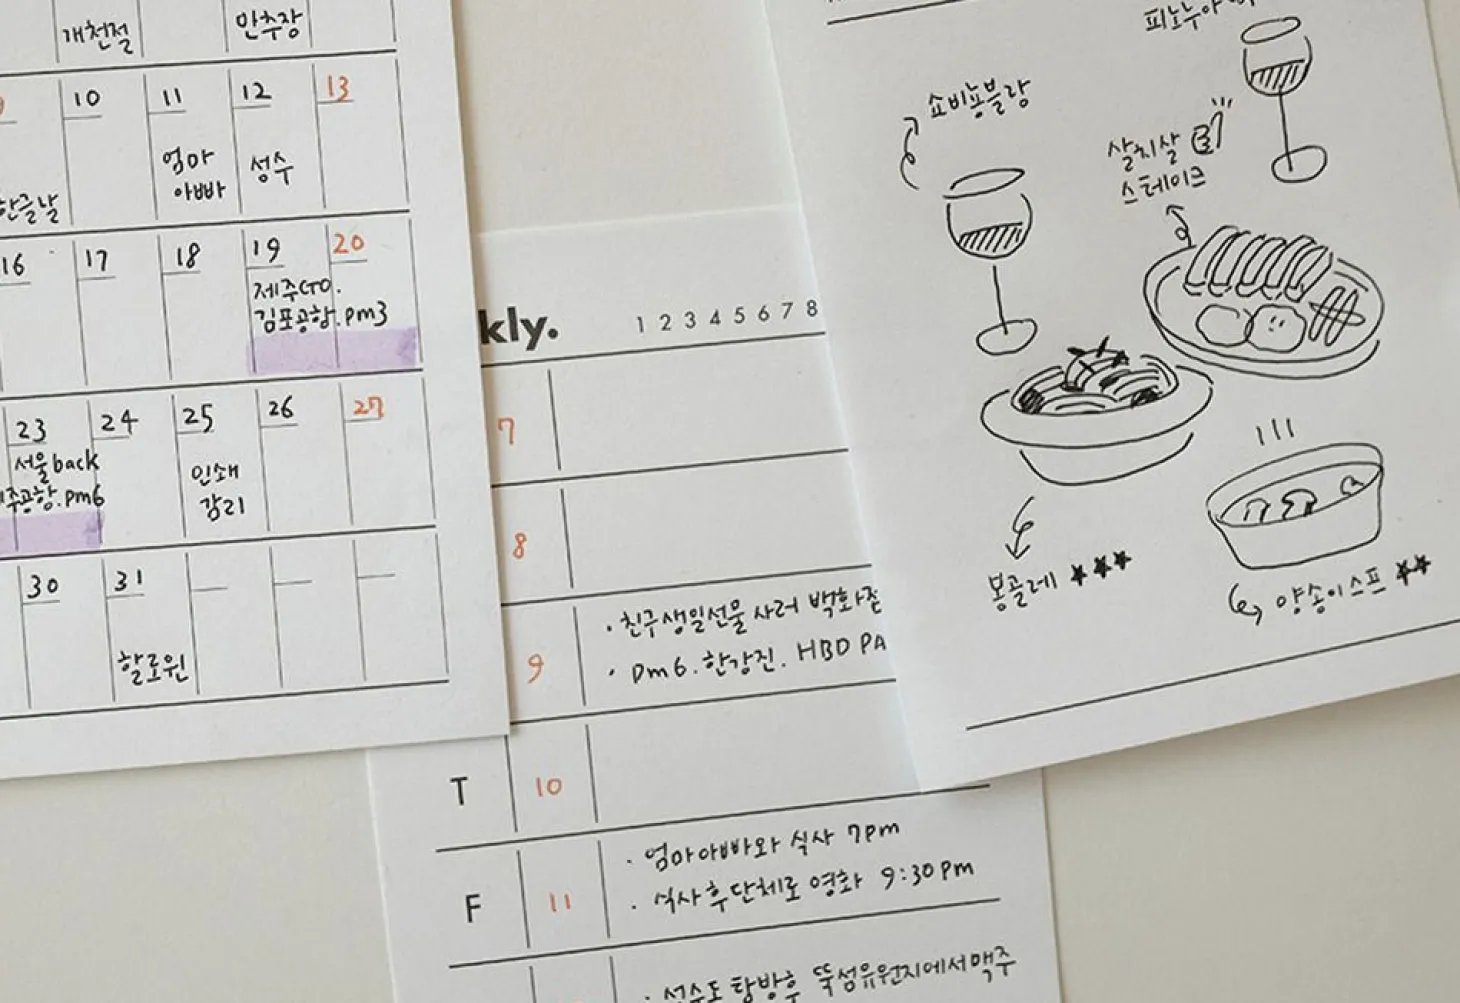 개천절
만추장
10
11
12
13
한글날
엄마
아빠
성수
16
17
18
19
20
제주GO.
김포공항.pm3
23
24
25
26
27
서울back
제주공항.pm6
인쇄
감리
30
31
할로윈
kly.
1 2 3 4 5 6 7 8
7
8
9
· 친구생일선물 사러 백화점
· pm6. 한강진. HBD PA
T
10
F
11
· 엄마아빠와 식사 7pm
· 식사 후 단체로 영화 9:30pm
· 성수도 탐방후 뚝섬유원지에서 맥주
피노누아
쇼비뇽블랑
살치살
스테이크
봉골레 ★★★
양송이스프 ★★